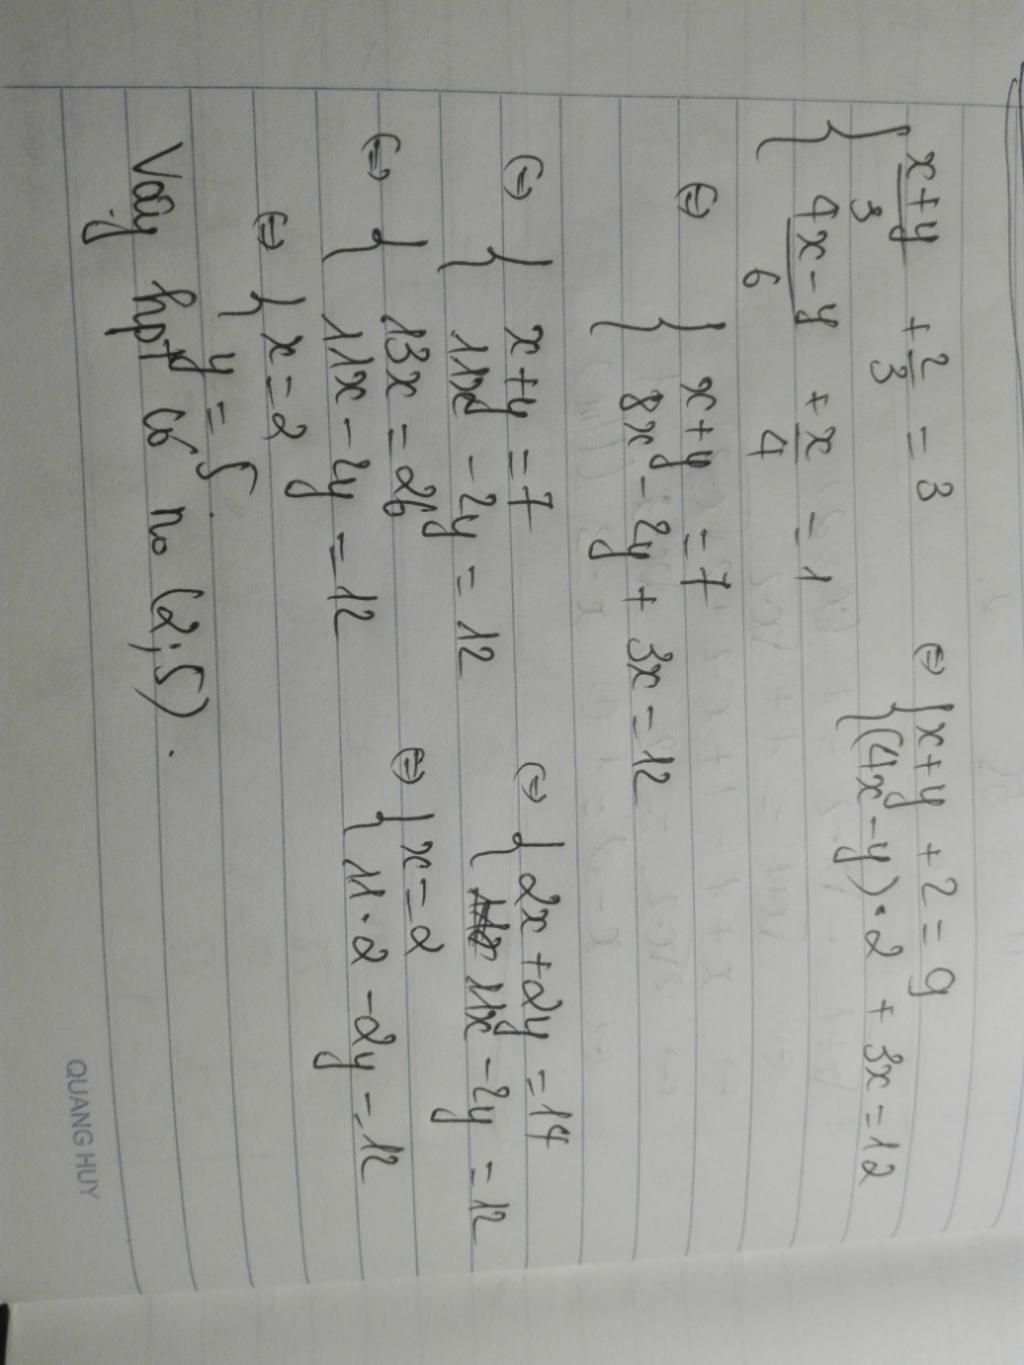 { x+y/3 + 2/3 = 3
{ 4x-y/6 + x/4 = 1
⇔ { x+y + 2 = 9
{ (4x-y)·2 + 3x = 12
⇔ { x+y = 7
{ 8x - 2y + 3x = 12
⇔ { x+y = 7
{ 11x - 2y = 12
⇔ { 2x + 2y = 14
{ 11x - 2y = 12
⇔ { 13x = 26
{ 11x - 2y = 12
⇔ { x = 2
{ 11·2 - 2y = 12
⇔ { x = 2
{ y = 5.
Vậy hpt có no (2;5).
QUANG HUY